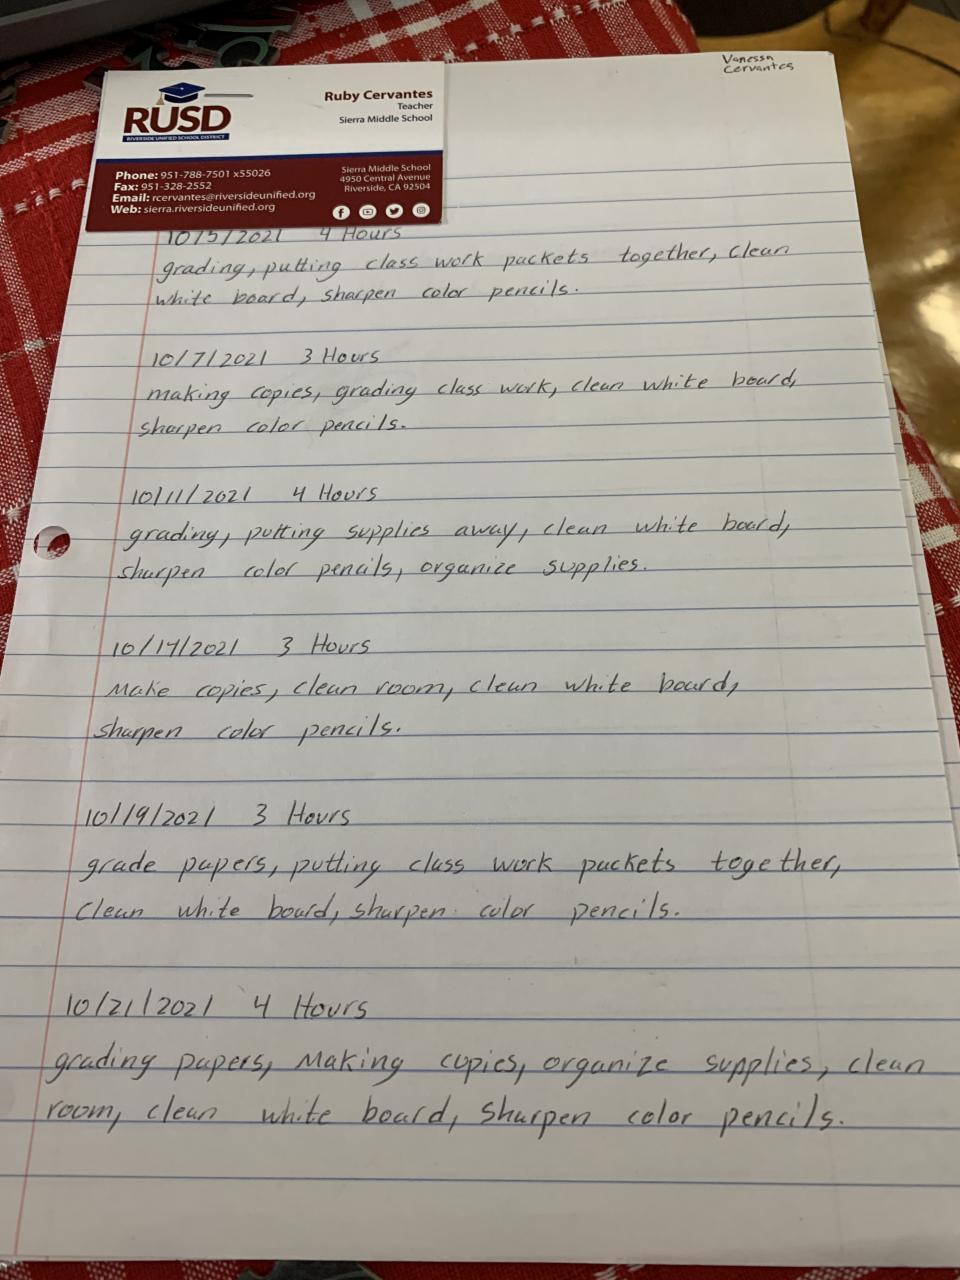 Vanessa
Cervantes
RUSD
RIVERSIDE UNIFIED SCHOOL DISTRICT
Ruby Cervantes
Teacher
Sierra Middle School
Phone: 951-788-7501 x55026
Fax: 951-328-2552
Email: rcervantes@riversideunified.org
Web: sierra.riversideunified.org
Sierra Middle School
4950 Central Avenue
Riverside, CA 92504
10/5/2021 4 Hours
grading, putting class work packets together, clean
white board, sharpen color pencils.
10/7/2021 3 Hours
making copies, grading class work, clean white board,
sharpen color pencils.
10/11/2021 4 Hours
grading, putting supplies away, clean white board,
sharpen color pencils, organize supplies.
10/14/2021 3 Hours
Make copies, clean room, clean white board,
sharpen color pencils.
10/19/2021 3 Hours
grade papers, putting class work packets together,
Clean white board, sharpen color pencils.
10/21/2021 4 Hours
grading papers, Making copies, organize supplies, clean
room, clean white board, sharpen color pencils.